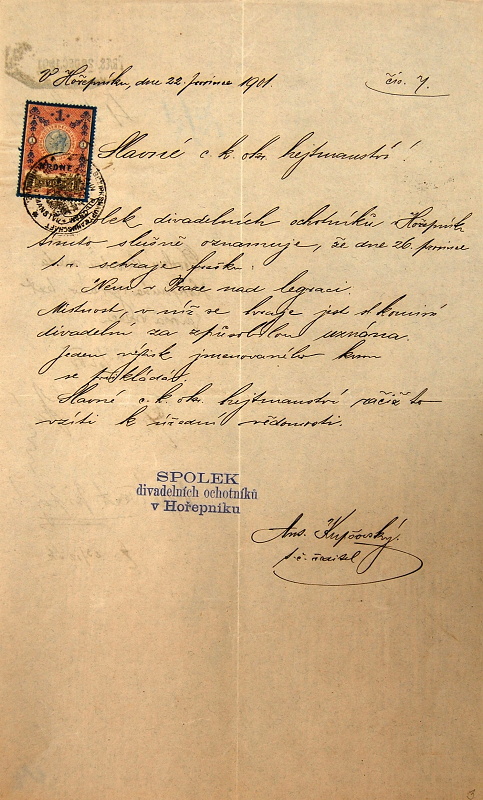 V Hořepníku, dne 22. prosince 1901.
čís. 7.
1
KRONE
Slavné c. k. okr. hejtmanství!
Spolek divadelních ochotníků v Hořepníku
tímto slušně oznamuje, že dne 26. prosince
t. r. sehraje frašku:
Není v Praze nad legraci.
Místnost, v níž se hraje jest od komise
divadelní za způsobilou uznána.
Jeden výtisk jmenovaného kusu
se přikládá.
Slavné c. k. okr. hejtmanství račiž to
vzíti k úřední vědomosti.
SPOLEK
divadelních ochotníků
v Hořepníku
Ant.
t. č. ředitel
3